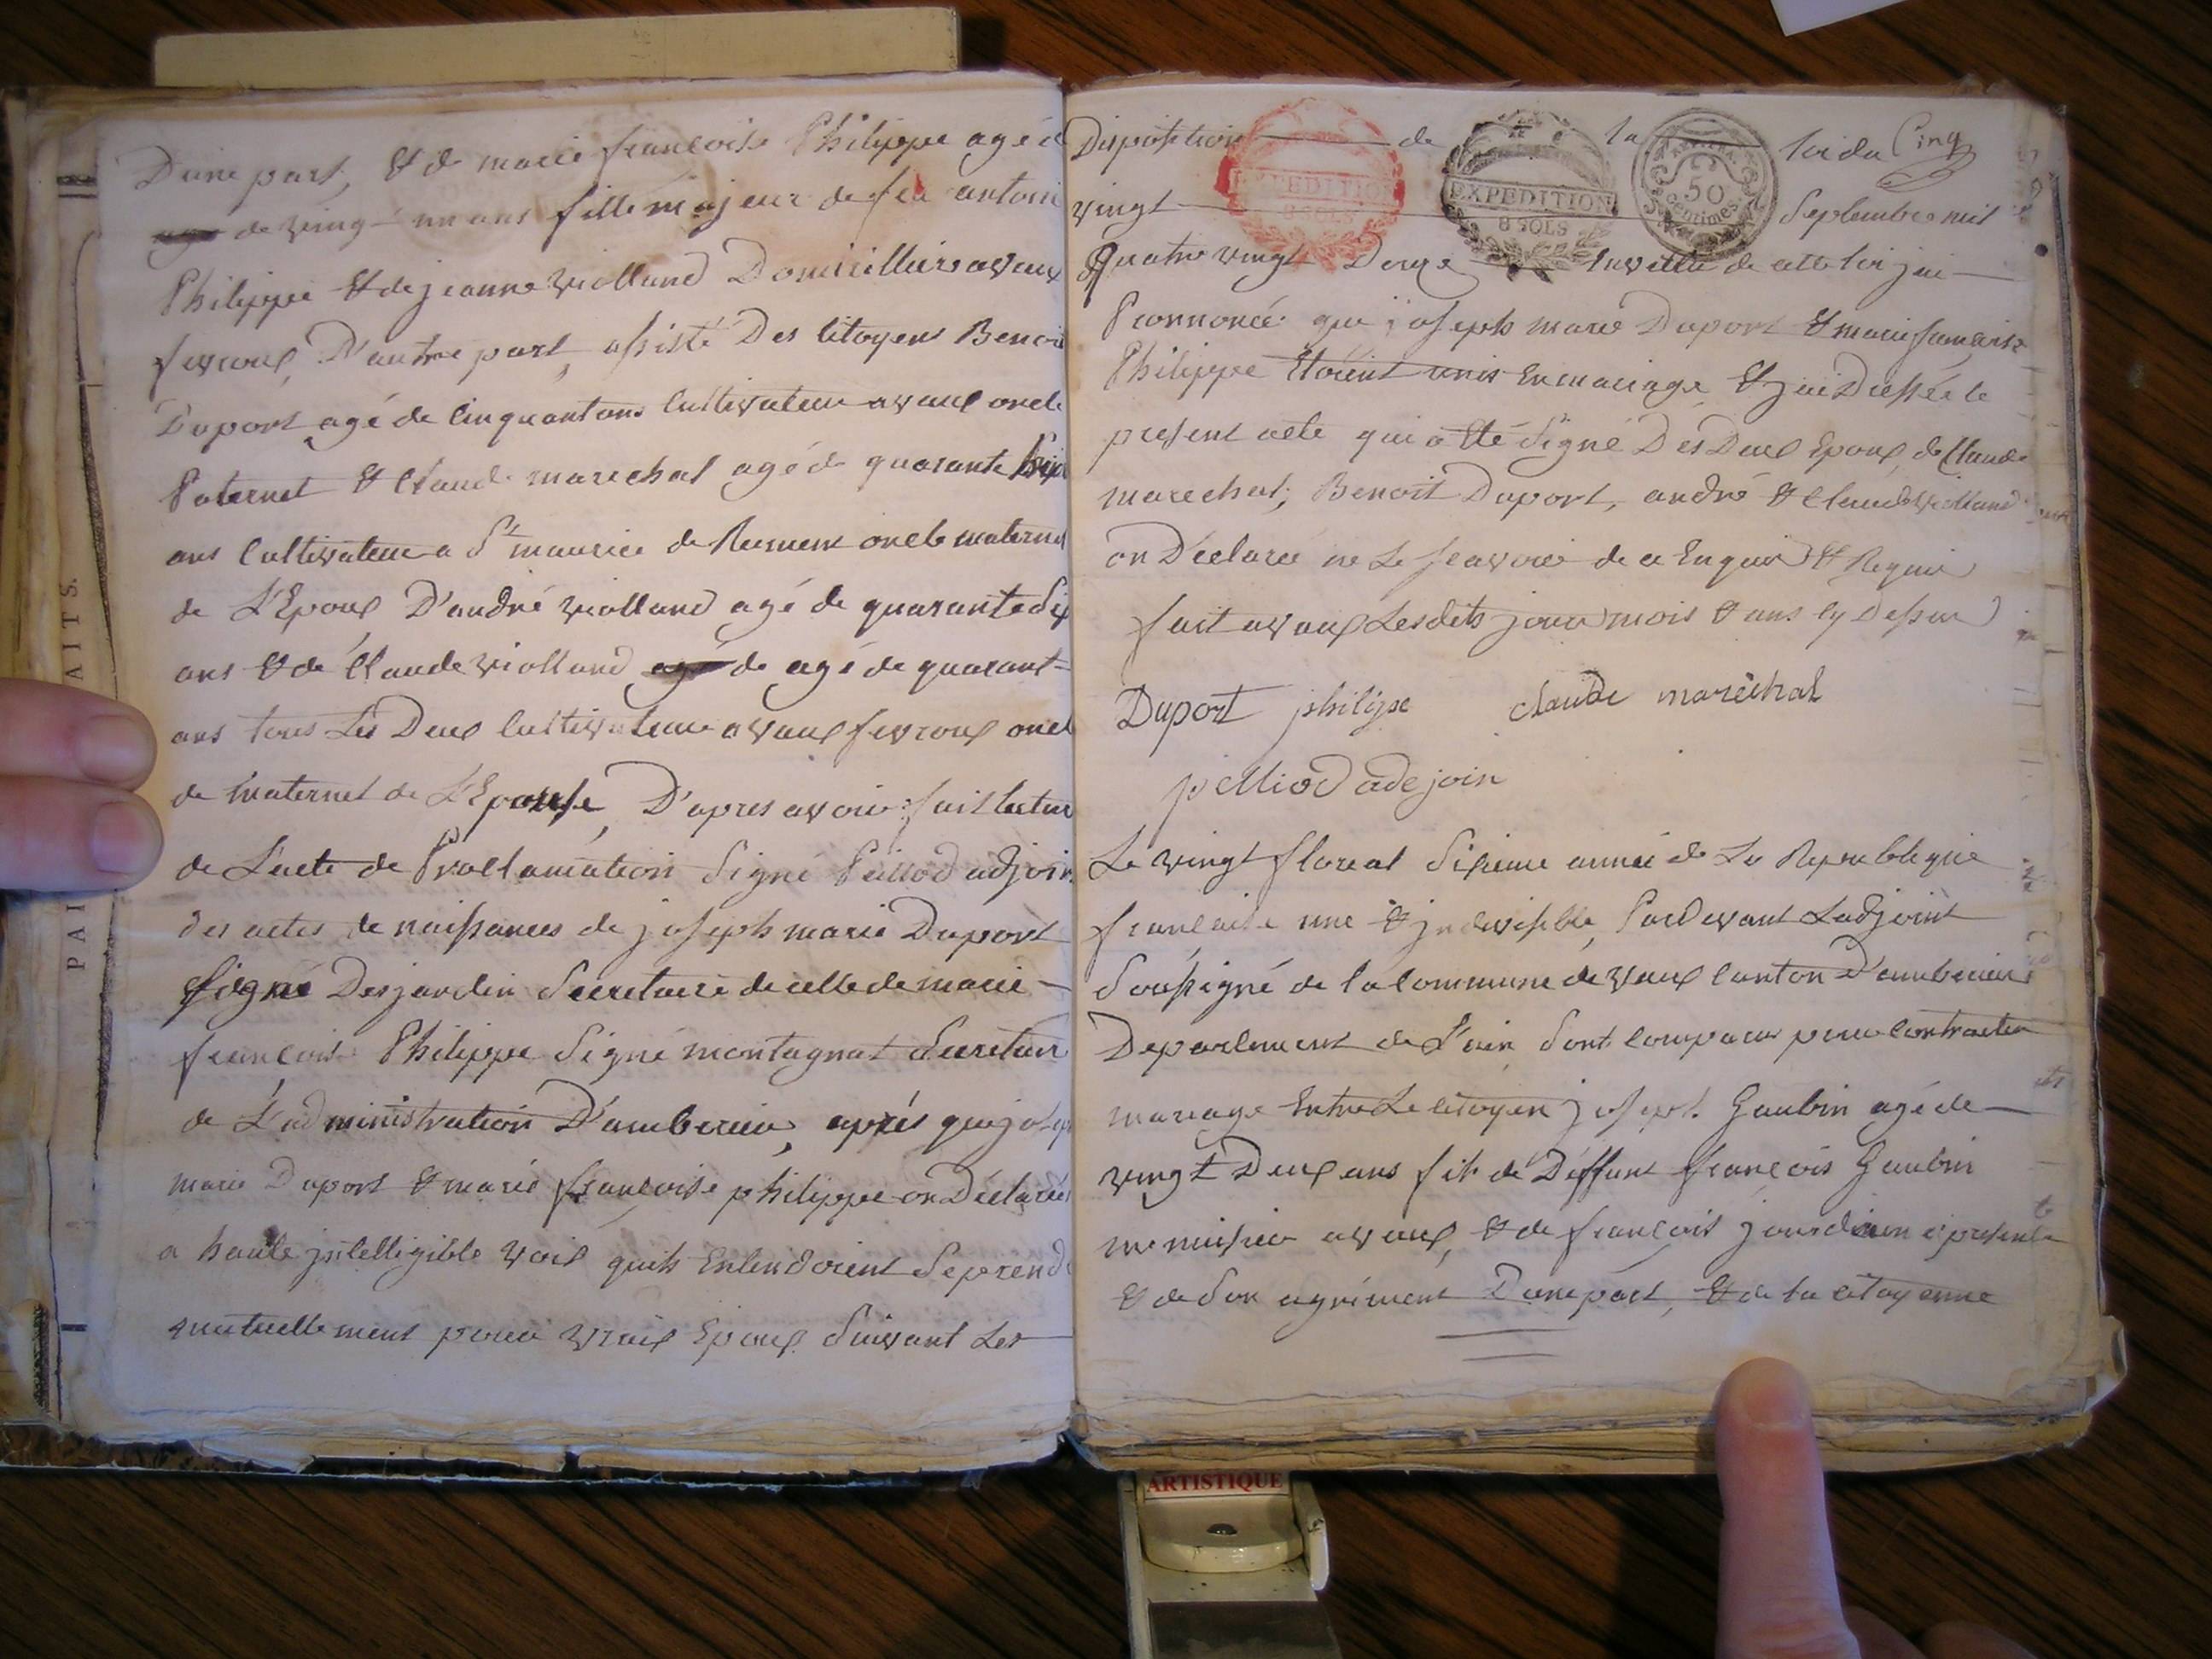 D'une part, & de marie francoise Philippe agé d
de vingt-un ans fille majeur de feu antoin
Philippe & de jeanne violland Domicilliers a vaux
fevroux, D'autre part, assisté Des Citoyens Benoi
Duport agé de cinquant ans cultivateur a vaux oncle
Paternel & Claude marechal agé de quarante
ans Cultivateur a St maurice de Remens oncle maternel
de L'Epoux D'andré violland agé de quarante six
ans & de Claude violland agé de agé de quarant-
ans tous Les Deux Cultivateur a vaux fevroux oncl
de maternel de L'Epouse, D'apres avoir fait lectur
de L'acte de Proclamation Signé Pelliod adjoin
des actes de naissances de joseph marie Duport
signé Desjardin Secretaire de celle de marie-
francoise Philippe Signé montagnat Secretair
de L'administration D'amberieu, après que josep
marie Duport & marie françoise philippe on Déclaré
a haute jntelligible voix quils Entendoient Se prend
mutuellement pour vraix Epoux Suivant Les
Disposition de la loi du Cinq
vingt Septembre mil
Quatre vingt Douze En vertu de cette loi jai
Pronnoncé que joseph marie Duport & marie françoise
Philippe Etoient unis En mariage & jai Dressée le
present acte qui a Eté Signé Des Deux Epoux, de Claude
marechal, Benoit Duport, andré & Claude violland
on Déclaré ne Le Scavoir de ce Enquis & Requis
fait a vaux Lesdits jour mois & ans cy Dessus
Duport philippe claude maréchal
pelliod adejoin
Le vingt floreal Sixieme année de La Republique
francaise une & jndivisible, Pardevant Ladjoint
Soussigné de la Commune de vaux Canton D'amberieux
Departement de L'ain Sont comparus pour Contracter
mariage Entre Le citoyen joseph Gaubin agé de
vingt Deux ans fils de Déffunt françois Gaubin
menuisier a vaux, & de françois jourdain cy presente
& de Son agrément D'une part, & de la citoyenne
EXPEDITION
8 SOLS
EXPEDITION
8 SOLS
50
centimes
AITS.
PAI
ARTISTIQUE